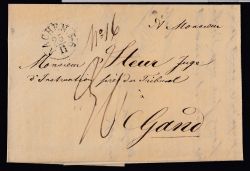 N° 16
A Monsieur
Monsieur Fleur Juge
d'Instruction près du Tribunal
à
Gand